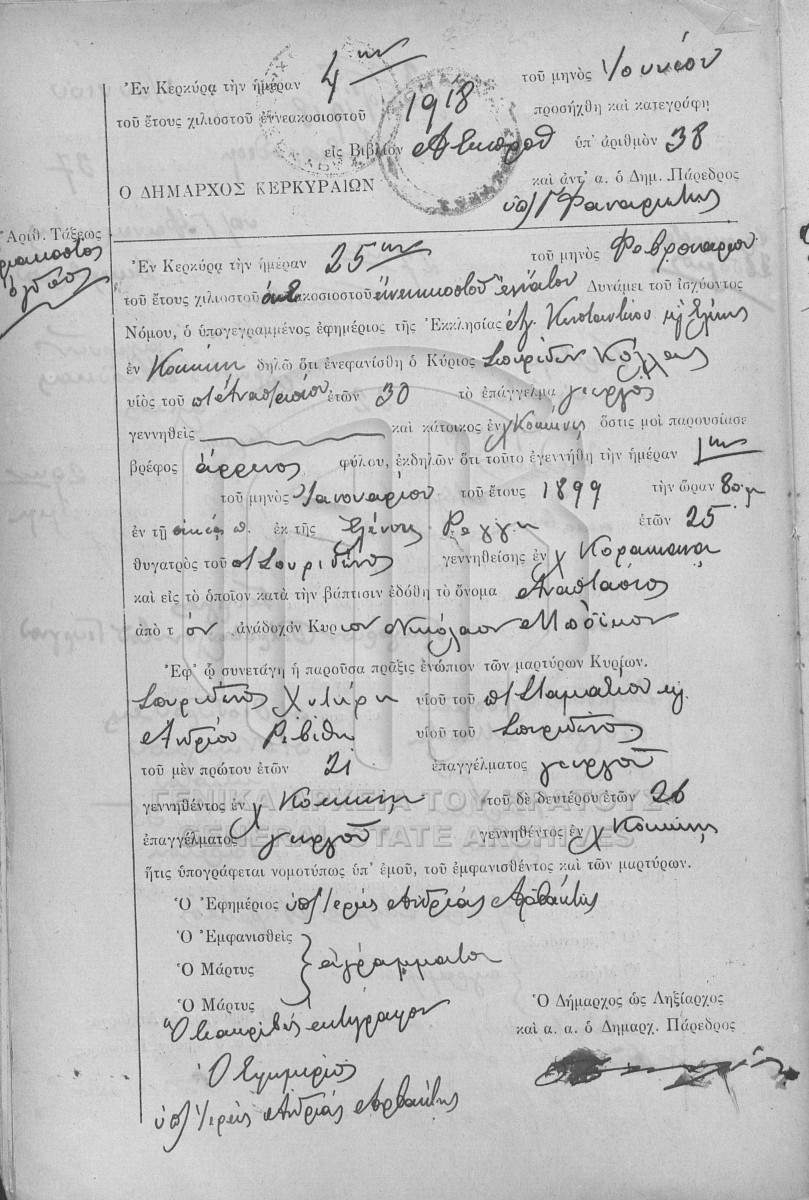 Ἐν Κερκύρᾳ τὴν ἡμέραν 4ην τοῦ μηνὸς Ἰουνίου
τοῦ ἔτους χιλιοστοῦ ἐννεακοσιοστοῦ 1918 προσήχθη καὶ κατεγράφη
εἰς Βιβλίον ὑπ' ἀριθμὸν 38
Ο ΔΗΜΑΡΧΟΣ ΚΕΡΚΥΡΑΙΩΝ καὶ ἀντ' α. ὁ Δημ. Πάρεδρος
Ἀριθ. Τάξεως
ὄγδοος
Ἐν Κερκύρᾳ τὴν ἡμέραν 25ην τοῦ μηνὸς Φεβρουαρίου
τοῦ ἔτους χιλιοστοῦ ὀκτακοσιοστοῦ ἐνενηκοστοῦ ἐνάτου Δυνάμει τοῦ ἰσχύοντος
Νόμου, ὁ ὑπογεγραμμένος ἐφημέριος τῆς Ἐκκλησίας Ἁγ. Κωσταντίνου κ Ἑλένης
ἐν Κοκκίνη δηλῶ ὅτι ἐνεφανίσθη ὁ Κύριος Σπυρίδων Κόλλας
υἱὸς τοῦ Ἀναστασίου ἐτῶν 30 τὸ ἐπάγγελμα γεωργός
γεννηθεὶς καὶ κάτοικος ἐν χ Κοκκίνης ὅστις μοὶ παρουσίασε
βρέφος ἄρρενος φύλου, ἐκδηλῶν ὅτι τοῦτο ἐγεννήθη τὴν ἡμέραν 1ην
τοῦ μηνὸς Ἰανουαρίου τοῦ ἔτους 1899 τὴν ὥραν 8
ἐν τῇ οἰκίᾳ ἐκ τῆς Ἑλένης ἐτῶν 25
θυγατρὸς τοῦ Σπυρίδωνος γεννηθείσης ἐν χ Κορακιανα
καὶ εἰς τὸ ὁποῖον κατὰ τὴν βάπτισιν ἐδόθη τὸ ὄνομα Ἀναστάσιος
ἀπὸ τ ὸν ἀνάδοχὸν Κυριον Νικόλαον
Ἐφ' ᾧ συνετάγη ἡ παροῦσα πρᾶξις ἐνώπιον τῶν μαρτύρων Κυρίων.
Σπυρίδωνος Χυτήρη υἱοῦ τοῦ Σταματίου κ
Ἀνδρέου υἱοῦ τοῦ Σπυρίδωνος
τοῦ μὲν πρώτου ἐτῶν 21 ἐπαγγέλματος γεωργοῦ
γεννηθέντος ἐν χ Κοκκίνη τοῦ δὲ δευτέρου ἐτῶν 26
ἐπαγγέλματος γεωργοῦ γεννηθέντος ἐν χ Κοκκίνης
ἥτις ὑπογράφεται νομοτύπως ὑπ' ἐμοῦ, τοῦ ἐμφανισθέντος καὶ τῶν μαρτύρων.
Ὁ Ἐφημέριος ὑπ/ Ἱερεὺς Ἀνδρέας Ἀρβανίτης
Ὁ Ἐμφανισθεὶς
Ὁ Μάρτυς ἀγράμματοι
Ὁ Μάρτυς
Ὁ Δήμαρχος ὡς Ληξίαρχος
καὶ α. α. ὁ Δημαρχ. Πάρεδρος
Ὁ Ἐφημέριος
ὑπ/ Ἱερεὺς Ἀνδρέας Ἀρβανίτης
ΓΕΝΙΚΑ ΑΡΧΕΙΑ ΤΟΥ ΚΡΑΤΟΥΣ
GENERAL STATE ARCHIVES